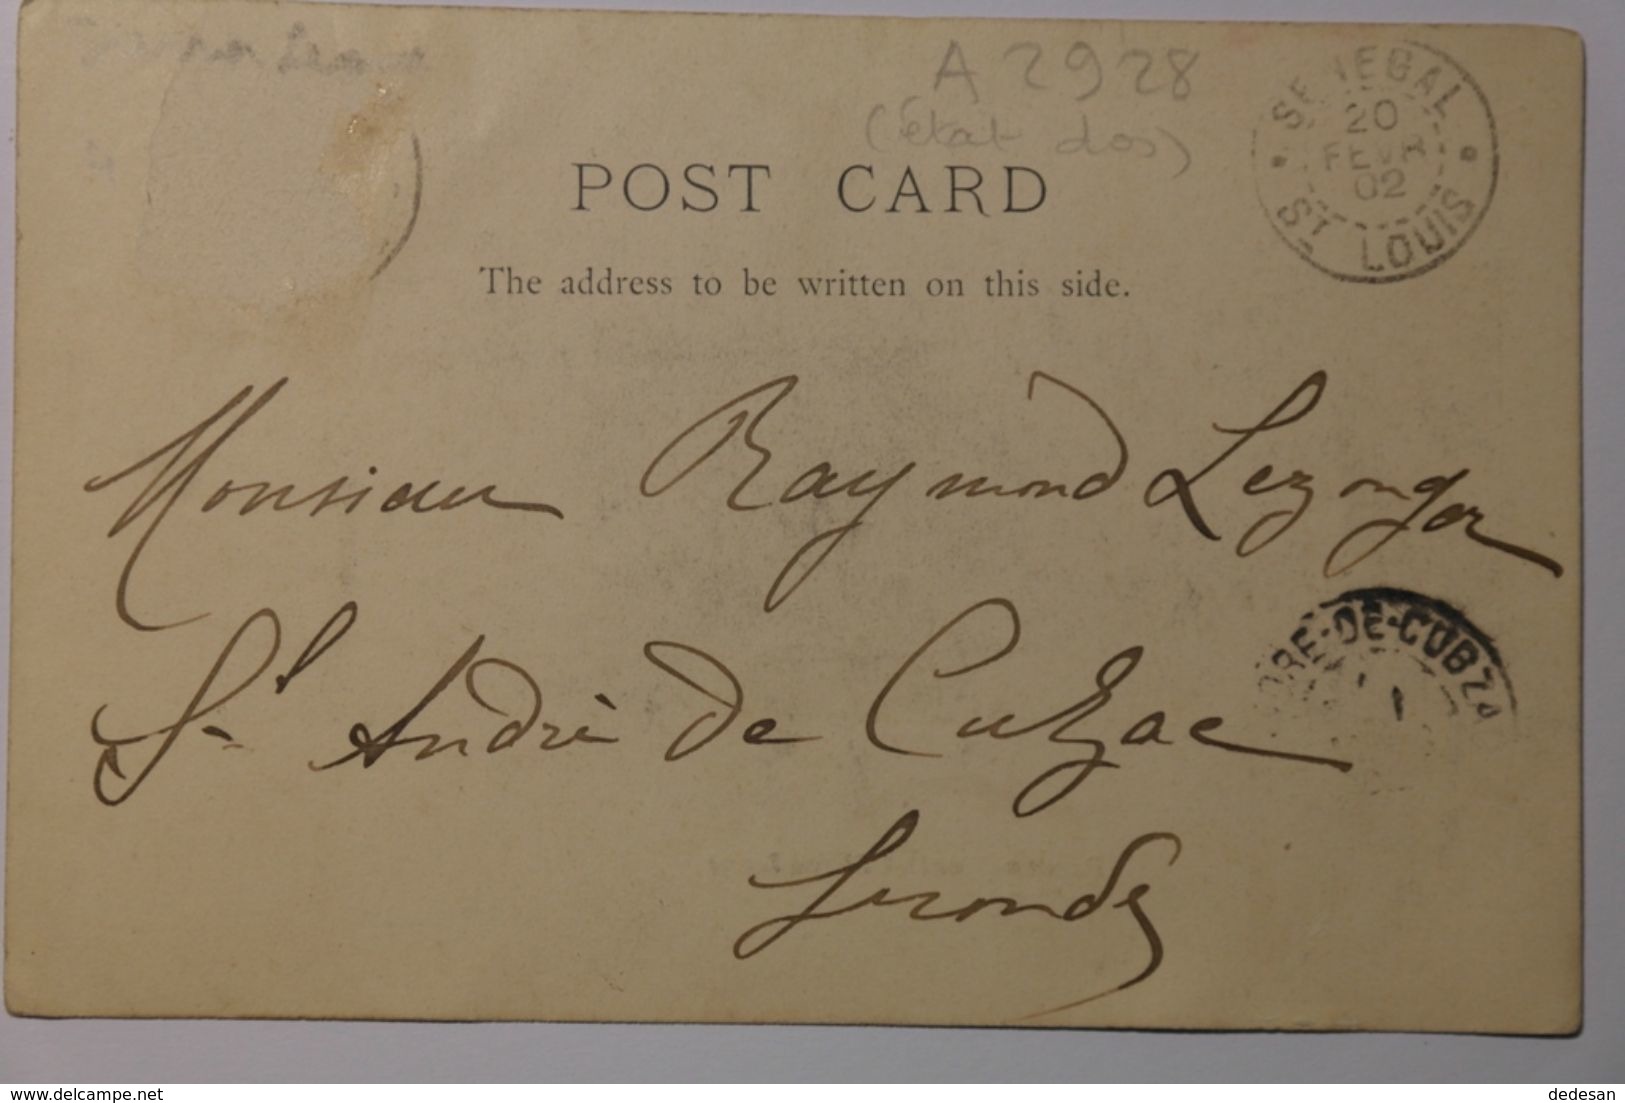 A 2928
(État dos)
SENEGAL
20
FEVR
02
ST LOUIS
POST CARD
The address to be written on this side.
Monsieur Raymond Lezongar
St André de Cubzac
DRE-DE-CUBZA
Gironde
dedesan